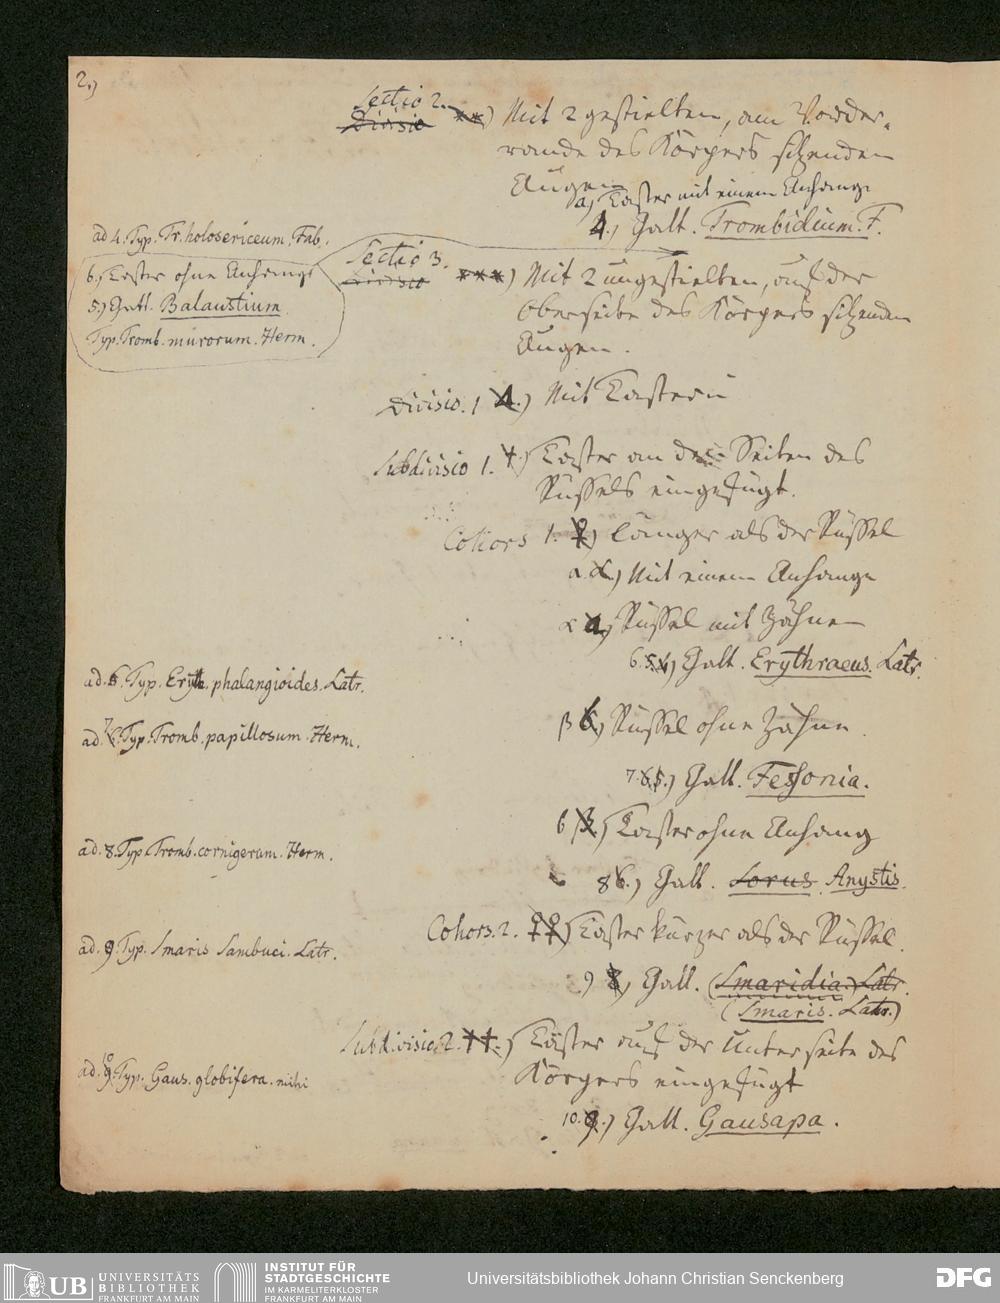 2.)
Sectio 2.
Divisio **) Mit 2 gestielten, am Vorder-
rande des Körpers sitzenden
Augen
a) Taster mit einem Anhange
4.) Gatt. Trombidium. F.
ad 4. Typ. Tr. holosericeum. Fab.
b.) Taster ohne Anhange
5.) Gatt. Balaustium
Typ. Tromb. murorum. Herm.
Sectio 3.
Divisio ***) Mit 2 ungestielten, auf der
Oberseite des Körpers sitzenden
Augen.
Divisio. 1 4.) Mit Tastern
Subdivisio 1. †.) Taster an den Seiten des
Rüssels eingefügt.
Cohors 1. ♀) länger als der Rüssel
a. α.) Mit einem Anhange
α a.) Rüssel mit Zähnen
6. 5. 4.) Gatt. Erythraeus. Latr.
ad. 6. Typ. Eryth. phalangioides. Latr.
β b.) Rüssel ohne Zähne.
ad. 7. Typ. Tromb. papillosum. Herm.
7. 6. 5.) Gatt. Fessonia.
b β.) Taster ohne Anhang
ad. 8. Typ. Tromb. cornigerum. Herm.
8 6.) Gatt. Lorus Anystis.
Cohors. 2. ♀♀) Taster kürzer als der Rüssel.
ad. 9. Typ. Smaris Sambuci. Latr.
9 8.) Gatt. (Smaridia.) Latr.
(Smaris. Latr.)
Subdivisio. 2. ††.) Taster auf der Unterseite des
Körpers eingefügt
ad. 10. 9. Typ. Gaus. globifera. mihi
10. 9.) Gatt. Gausapa.
UB UNIVERSITÄTS
BIBLIOTHEK
FRANKFURT AM MAIN
INSTITUT FÜR
STADTGESCHICHTE
IM KARMELITERKLOSTER
FRANKFURT AM MAIN
Universitätsbibliothek Johann Christian Senckenberg
DFG